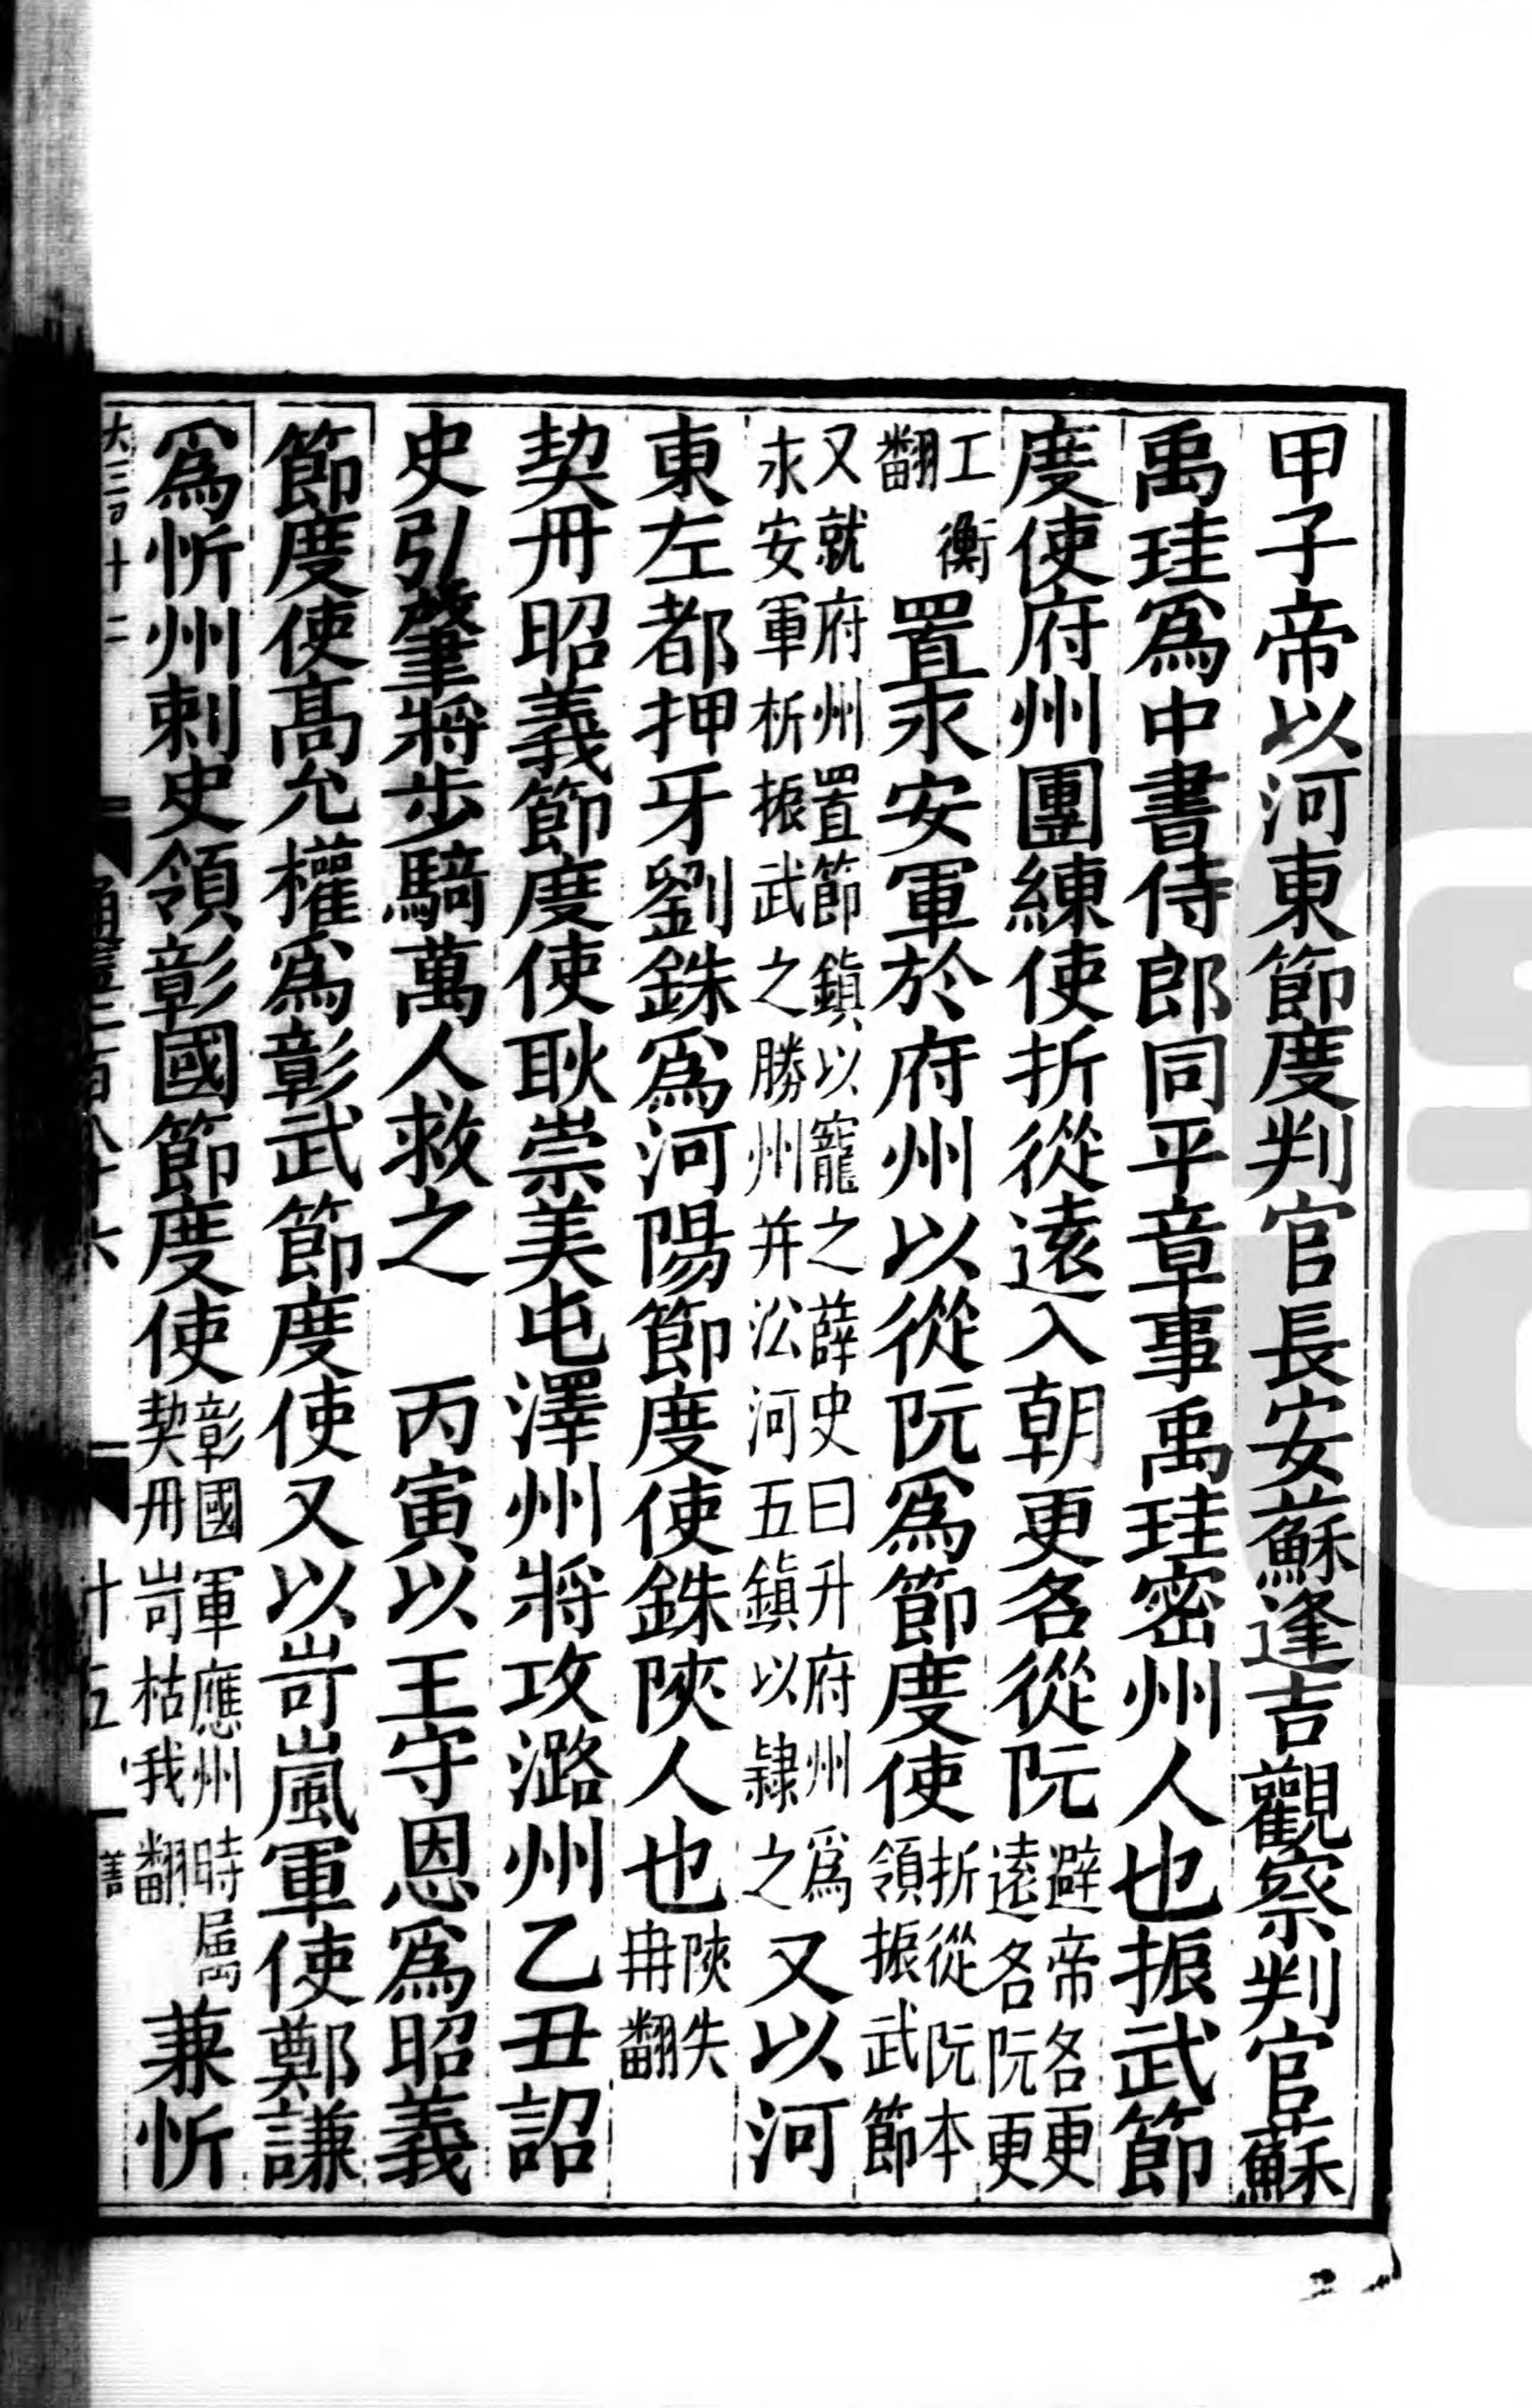 甲子帝以河東節度判官長安蘇逢吉觀察判官蘇
禹珪爲中書侍郎同平章事禹珪密州人也振武節
度使府州團練使折從遠入朝更名從阮避帝名更遠名阮更
工衡翻置永安軍於府州以從阮爲節度使折從阮本領振武節
又就府州置節鎮以寵之薛史曰升府州爲永安軍析振武之勝州并㳂河五鎮以隷之又以河
東左都押牙劉銖爲河陽節度使銖陝人也陝失冉翻
契丹昭義節度使耿崇美屯澤州將攻潞州乙丑詔
史弘肇將步騎萬人救之　丙寅以王守恩爲昭義
節度使高允權爲彰武節度使又以岢嵐軍使鄭謙
爲忻州刺史領彰國節度使彰國軍應州時屬契丹岢枯我翻兼忻
大三百十二
通鑑二百八十六
十五